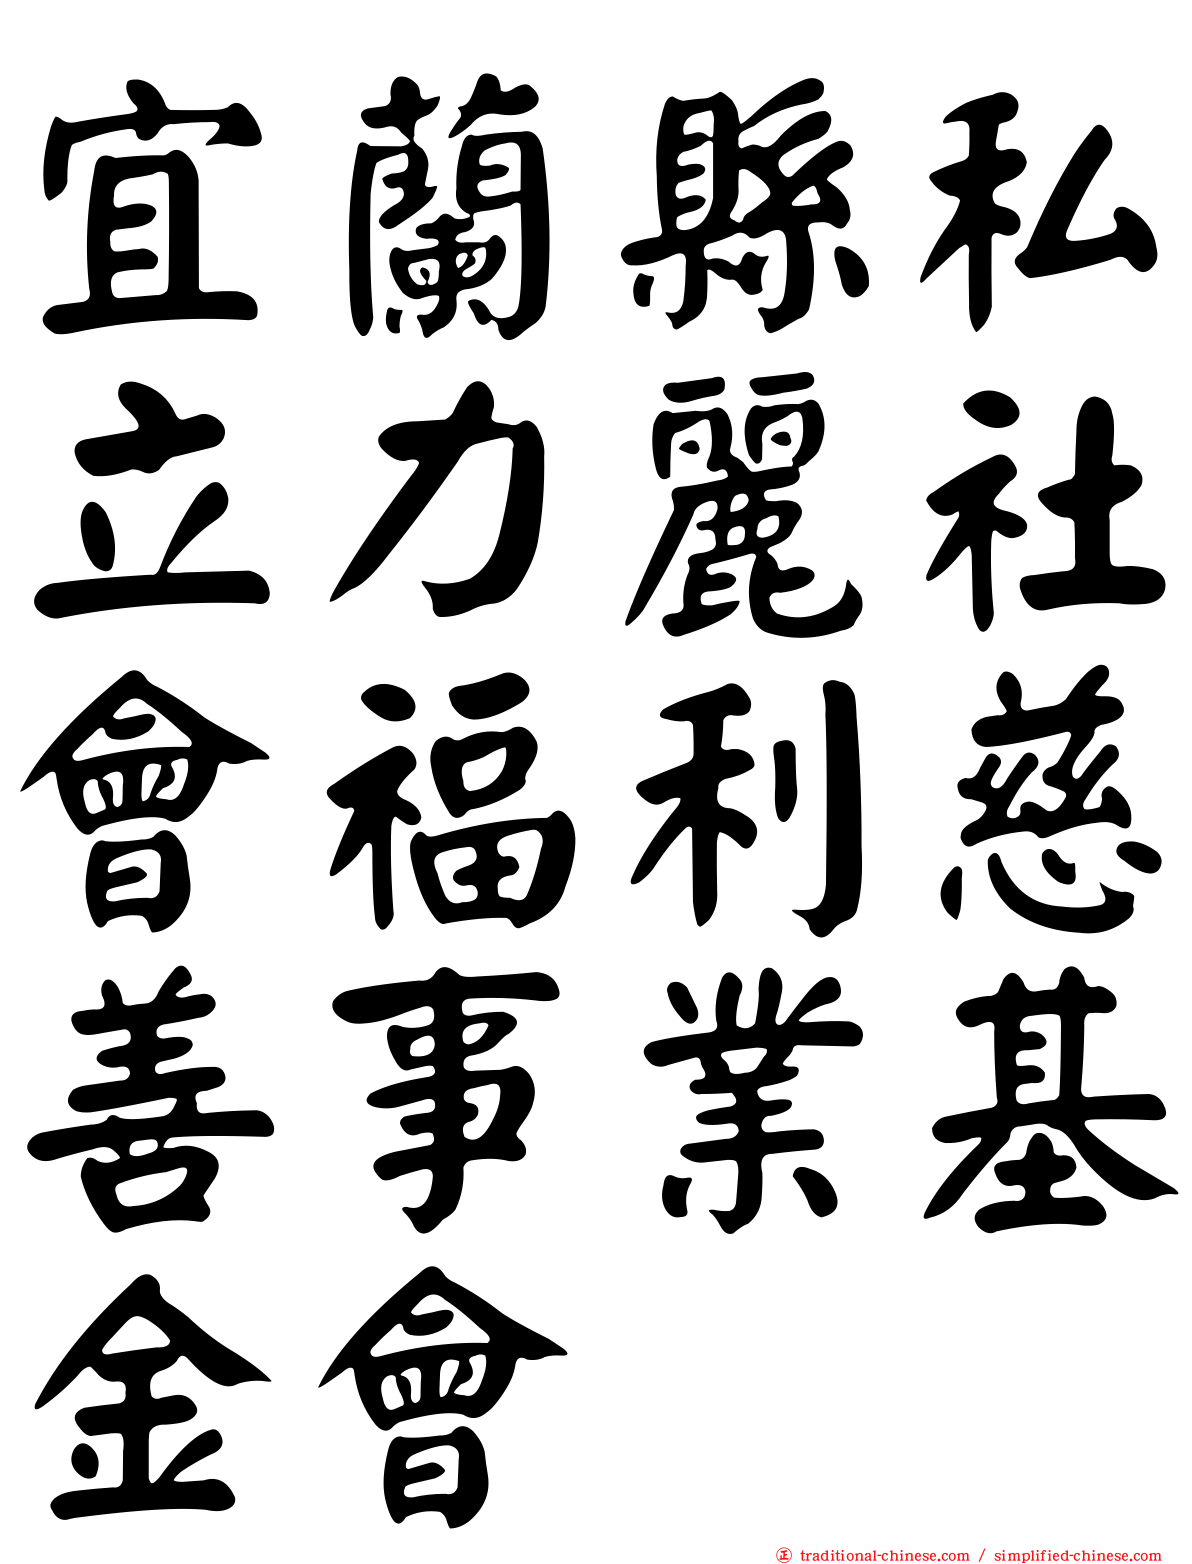 宜蘭縣私
立力麗社
會福利慈
善事業基
金會
正 traditional-chinese.com / simplified-chinese.com